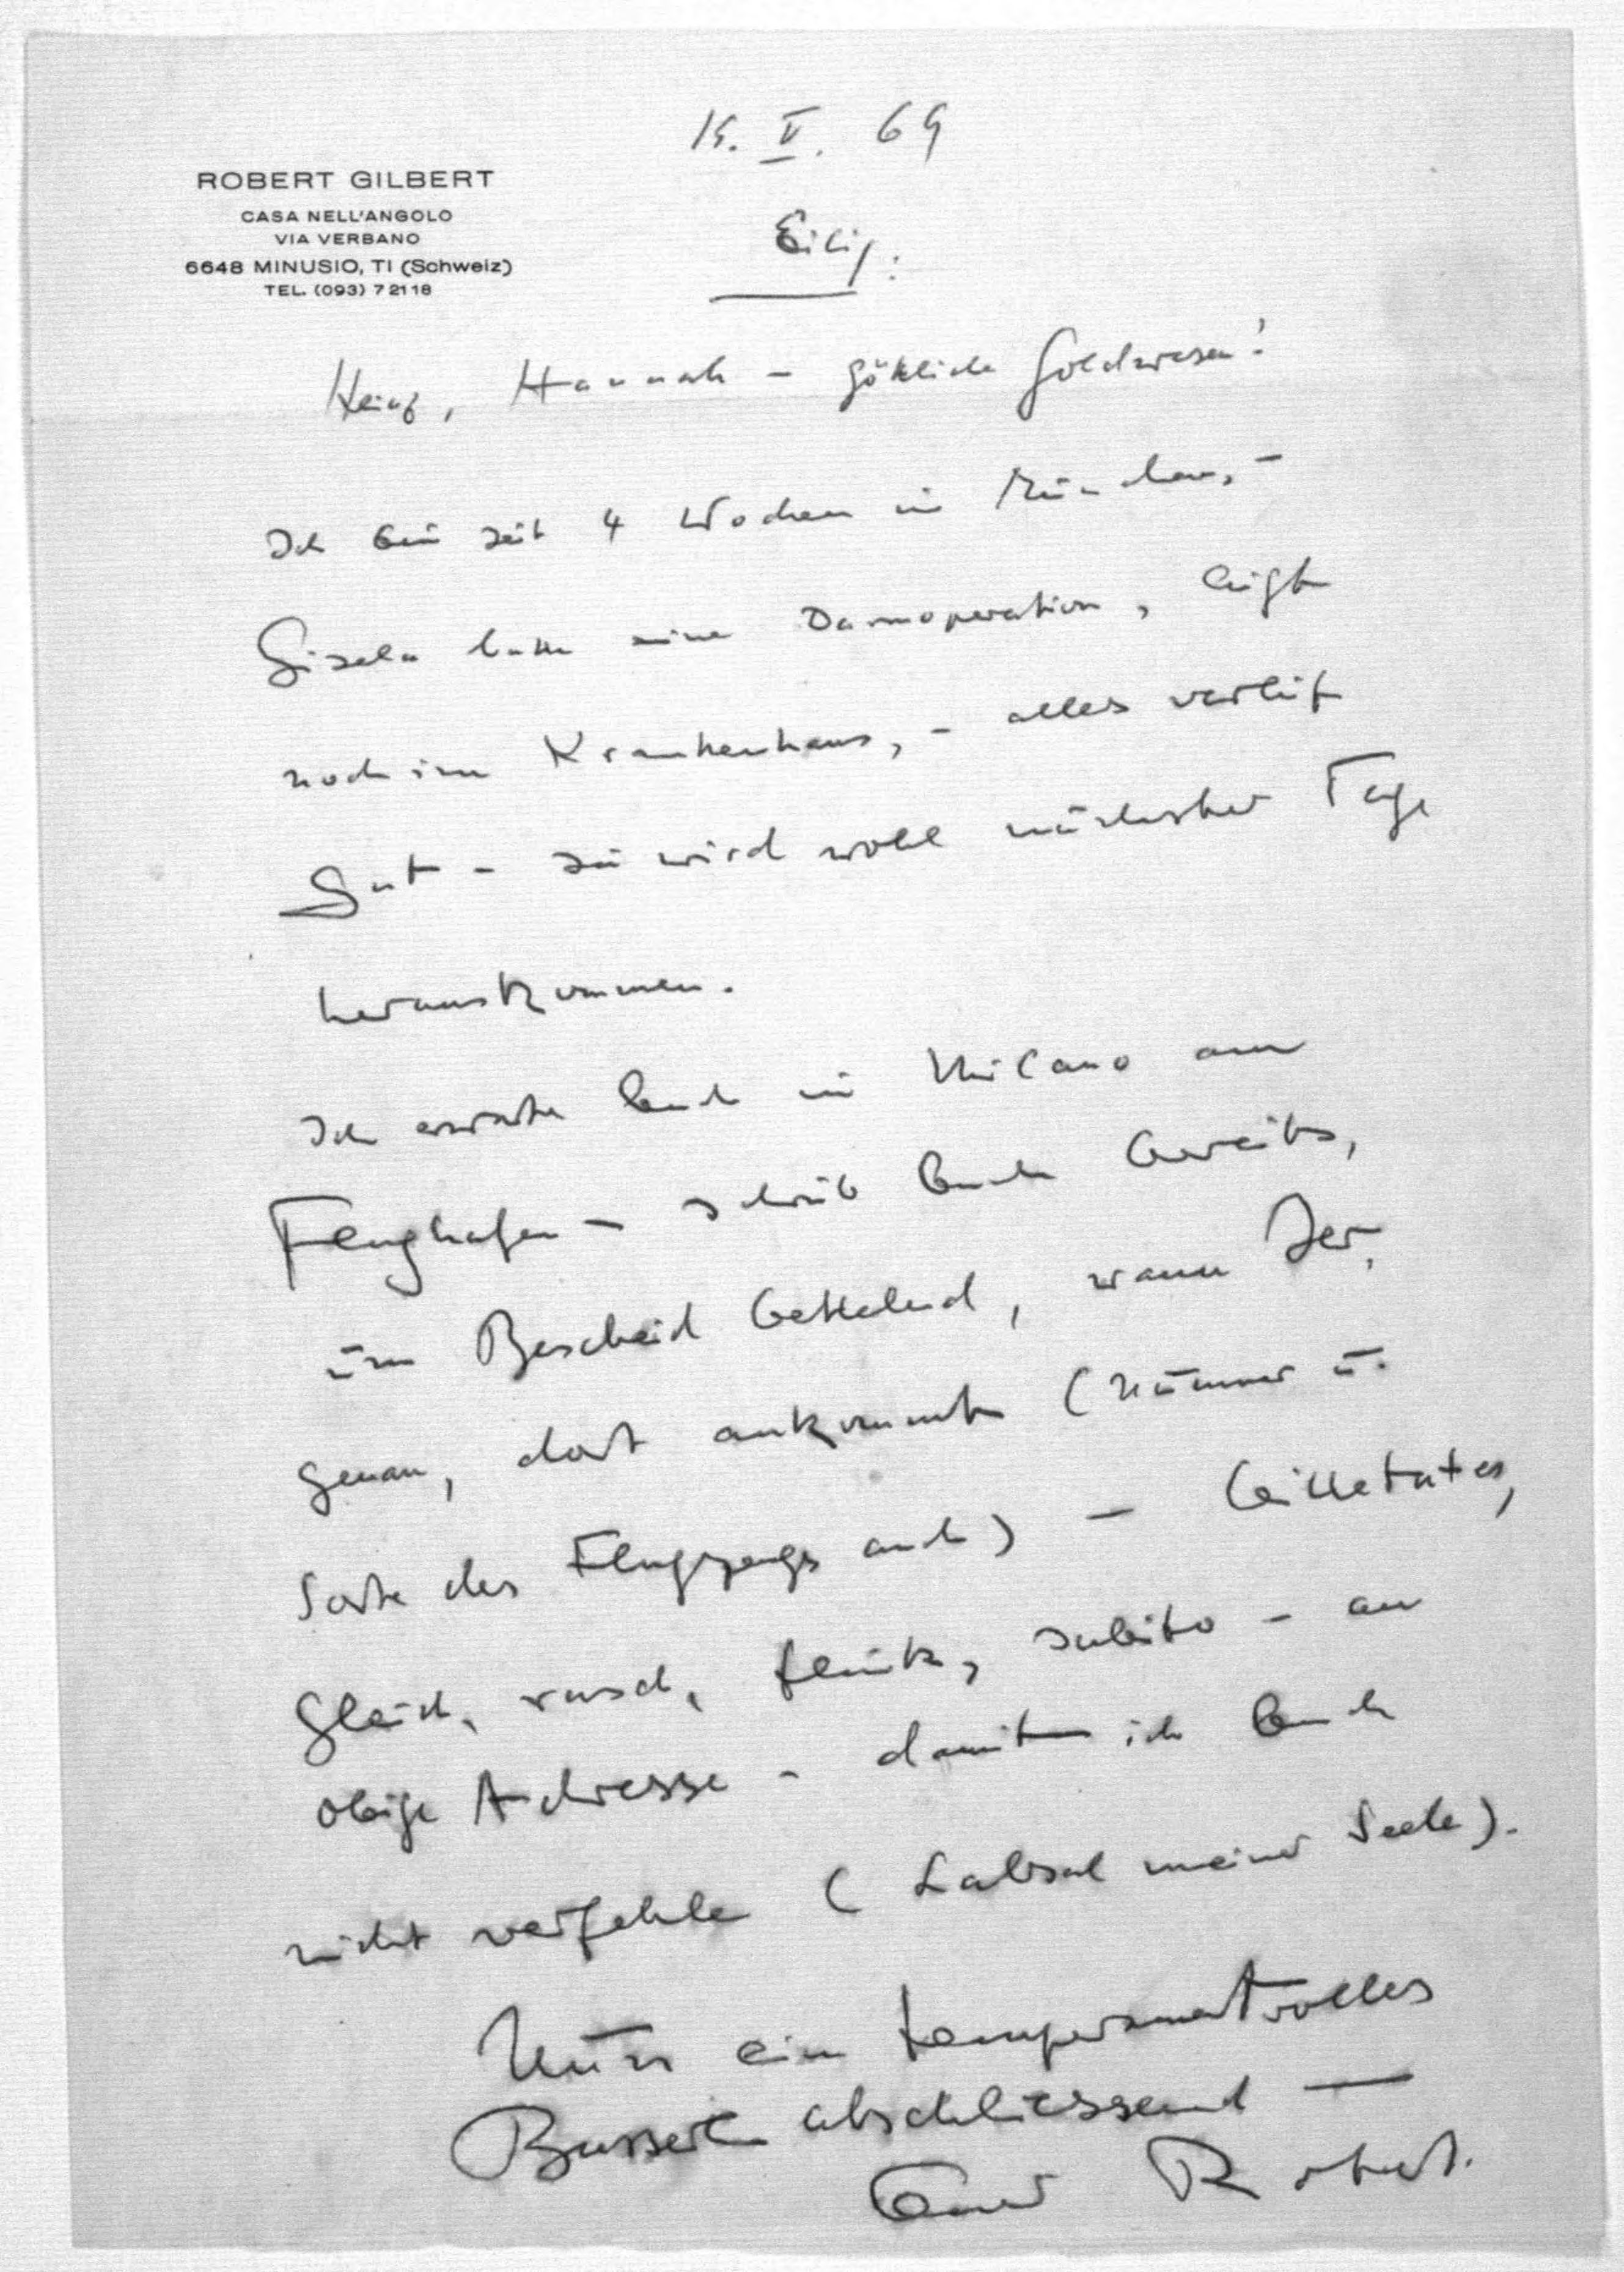 15. V. 69
ROBERT GILBERT
CASA NELL'ANGOLO
VIA VERBANO
6648 MINUSIO, TI (Schweiz)
TEL. (093) 7 21 18
Eilig:
Heinz, Hannah – göttliche Goldwesen!
Ich bin seit 4 Wochen in München, –
Gisela hatte eine Darmoperation, liegt
noch im Krankenhaus, – alles verlief
gut – sie wird wohl nächster Tage
herauskommen.
Ich erwarte Euch in Milano am
Flughafen – schrieb Euch bereits,
um Bescheid bettelnd, wann Ihr,
genau, dort ankommt (Nummer u.
Sorte des Flugzeugs auch) – bittetutes,
gleich, rasch, flink, subito – an
obige Adresse – damit ich Euch
nicht verfehle (Labsal meiner Seele).
Nur ein temperamentvolles
Busserl abschliessend —
Euer Robert.